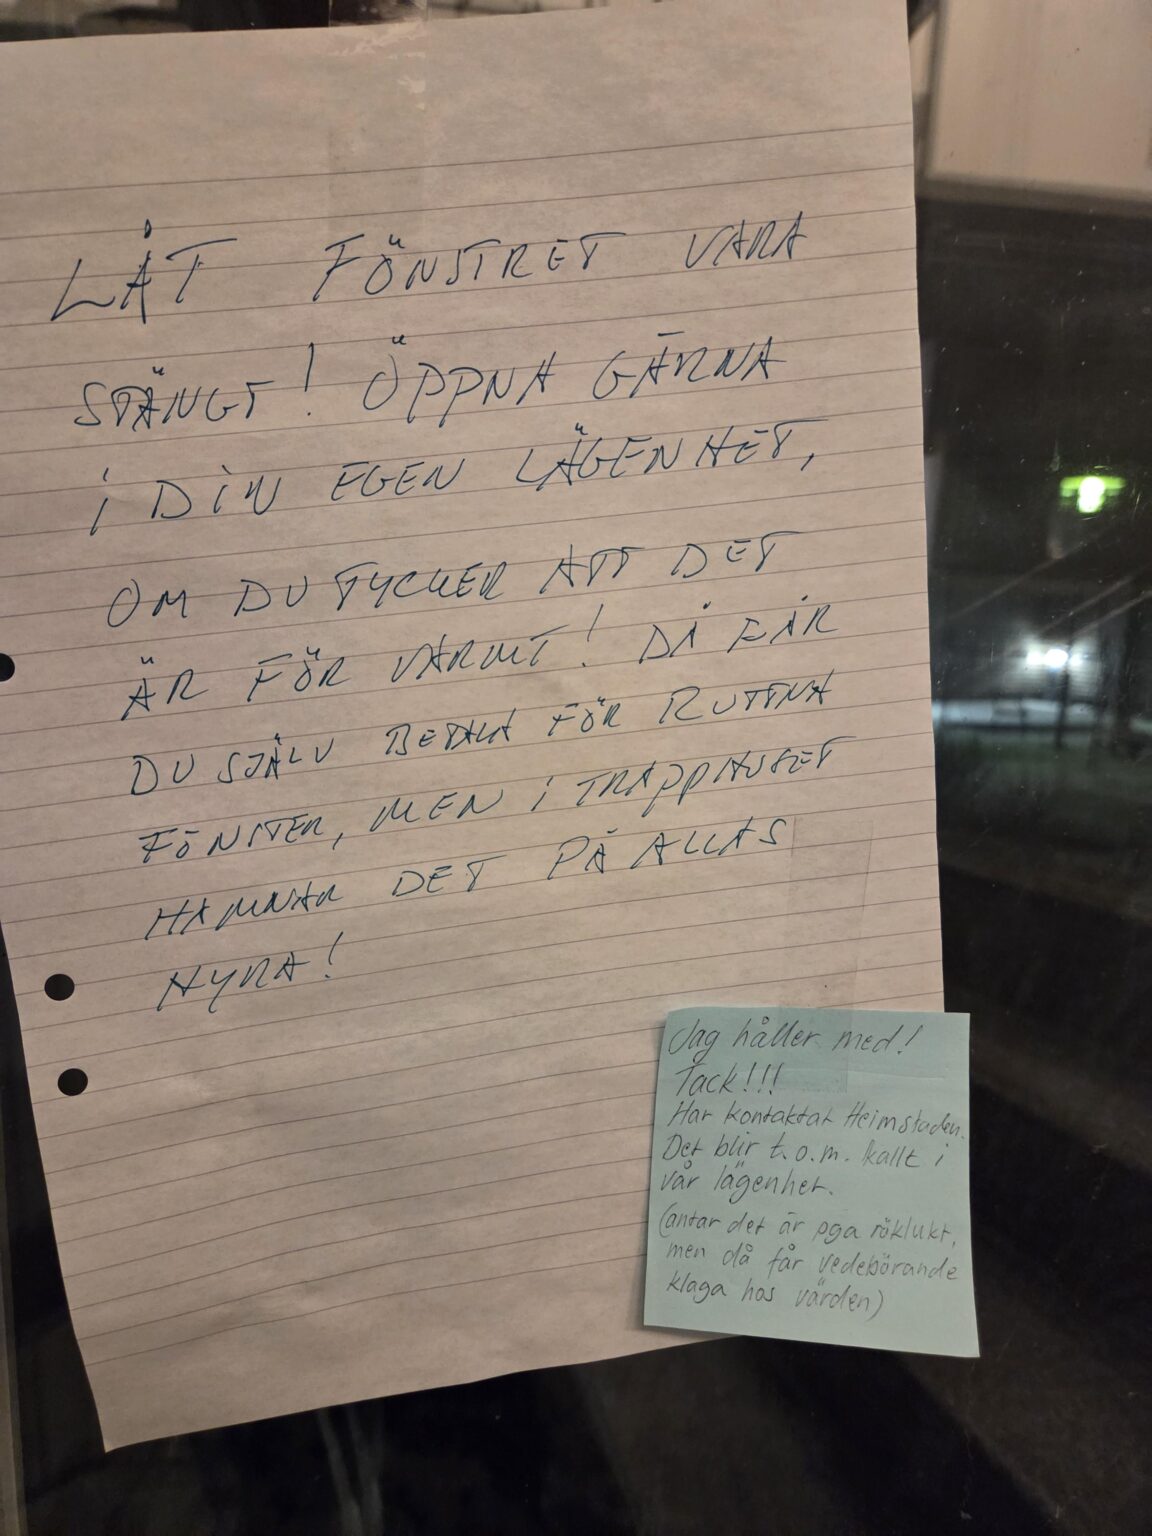 LÅT FÖNSTRET VARA
STÄNGT! ÖPPNA GÄRNA
i DiN EGEN LÄGENHET,
OM DU TYCKER ATT DET
ÄR FÖR VARMT! DÅ FÅR
DU SJÄLV BETALA FÖR RUTTNA
FÖNSTER, MEN i TRAPPHUSET
HAMNAR DET PÅ ALLAS
HYRA!
Jag håller med!
Tack!!!
Har kontaktat Heimstaden.
Det blir t.o.m. kallt i
vår lägenhet.
(antar det är pga röklukt,
men då får vedebörande
klaga hos värden)